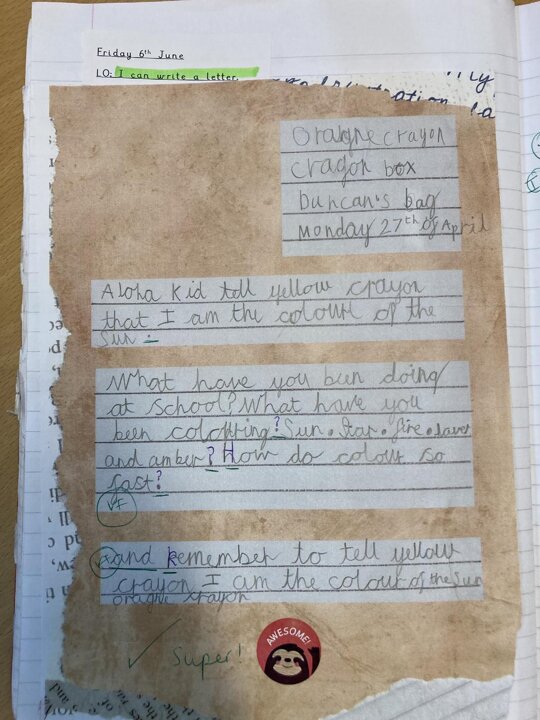 Friday 6th June
LO: I can write a letter.
Oragne crayon
crayon box
Duncan's bag
Monday 27th of April
Aloha Kid tell yellow crayon
that I am the colour of the
Sun.
What have you been doing
at school? What have you
been coloring? Sun. Star. fire. laver
and amber? How do colour so
fast?
and Remember to tell yellow
crayon I am the colour of the Sun
oragne crayon
Super!
AWESOME!